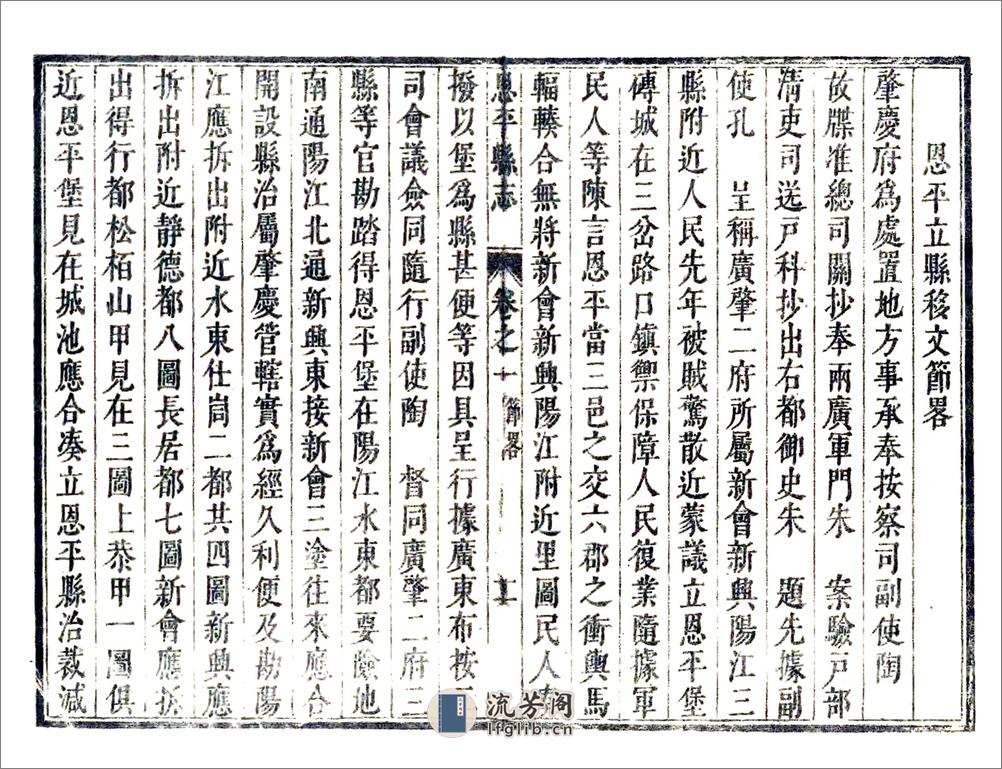 恩平立縣移文節畧
肇慶府為處置地方事承奉按察司副使陶
故牒准總司關抄奉兩廣軍門朱　案驗戸部
清吏司送戸科抄出右都御史朱　題先據副
使孔　呈稱廣肇二府所屬新會新興陽江三
縣附近人民先年被賊驚散近蒙議立恩平堡
磚城在三岔路口鎮禦保障人民復業隨據軍
民人等陳言恩平當三邑之交六郡之衝輿馬
輻輳合無將新會新興陽江附近里圖民人
恩平縣志　卷之十　節畧　十一
撥以堡為縣甚便等因具呈行據廣東布按
司會議僉同隨行副使陶　督同廣肇二府三
縣等官勘踏得恩平堡在陽江水東都要險地
南通陽江北通新興東接新會三塗往來應合
開設縣治屬肇慶管轄實為經久利便及勘陽
江應拆出附近水東仕峝二都共四圖新興應
拆出附近靜德都八圖長居都七圖新會應拆
出得行都松栢山甲見在三圖上恭甲一圖俱
近恩平堡見在城池應合凑立恩平縣治裁減
流芳閣
lfglib.cn